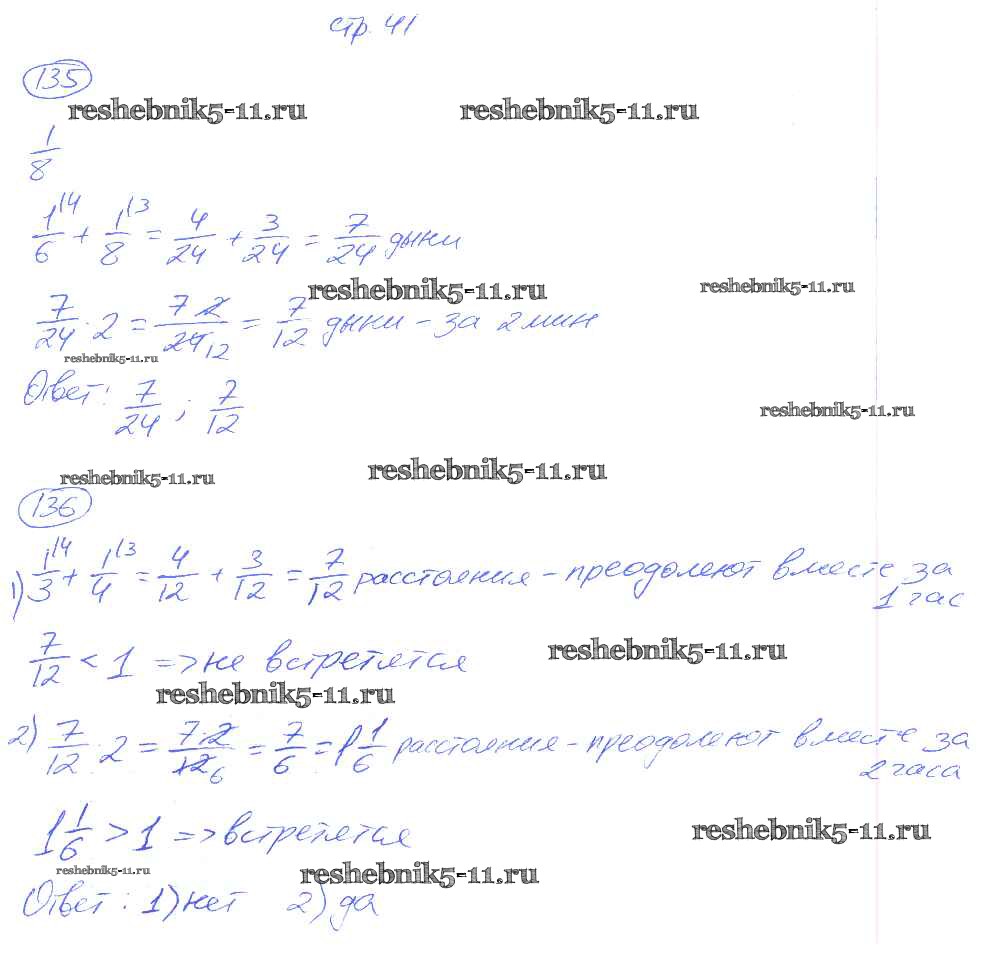 стр. 41
135
reshebnik5-11.ru reshebnik5-11.ru
1/8
1/6 \4 + 1/8 \3 = 4/24 + 3/24 = 7/24 дыни
reshebnik5-11.ru reshebnik5-11.ru
7/24 · 2 = 7 2/24 12 = 7/12 дыни - за 2 мин
reshebnik5-11.ru
Ответ: 7/24 ; 7/12
reshebnik5-11.ru
reshebnik5-11.ru reshebnik5-11.ru
136
1) 1/3 \4 + 1/4 \3 = 4/12 + 3/12 = 7/12 расстояния - преодолеют вместе за
1 час
7/12 < 1 => не встретятся
reshebnik5-11.ru
reshebnik5-11.ru
2) 7/12 · 2 = 7·2/12 6 = 7/6 = 1 1/6 расстояния - преодолеют вместе за
2 часа
1 1/6 > 1 => встретятся
reshebnik5-11.ru
reshebnik5-11.ru reshebnik5-11.ru
Ответ: 1) нет 2) да